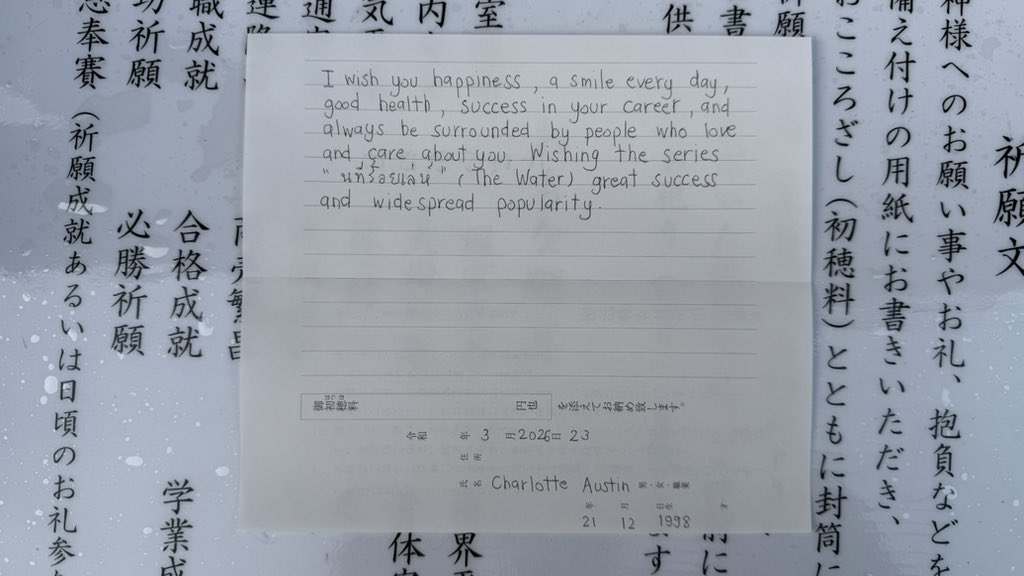 I wish you happiness, a smile every day,
good health, success in your career, and
always be surrounded by people who love
and care about you. Wishing the series
" นที่ร้อยเล่ห์ " (The Water) great success
and widespread popularity.
御初穂料 円也 を添えてお納め致します。
令和 年 3 月 2026 日 23
住所
氏名 Charlotte Austin 男・女・職業
年 月 日生 才
21 12 1998
祈願文
神様へのお願い事やお礼、抱負などを
備え付けの用紙にお書きいただき、
おこころざし(初穂料)とともに封筒に
祈願
書
供
室
内
気
通
運
職成就
功祈願
合格成就
必勝祈願
学業成
奉賽(祈願成就あるいは日頃のお礼参
体
界
前に
ます